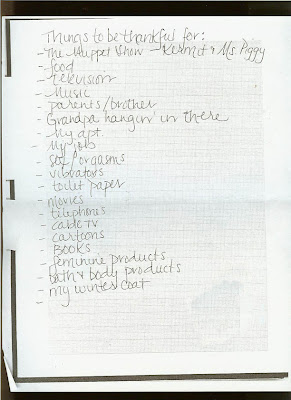 Things to be thankful for:
- The Muppet Show - Kermit & Ms Piggy
- food
- television
- Music
- parents/brother
- Grandpa hangin' in there
- My apt.
- My job
- sex/orgasms
- vibrators
- toilet paper
- movies
- telephones
- cable TV
- cartoons
- Books
- feminine products
- bath & body products
- my winter coat
-